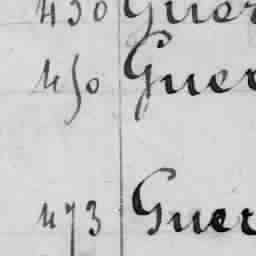 430 Guer
450 Guer
473 Guer